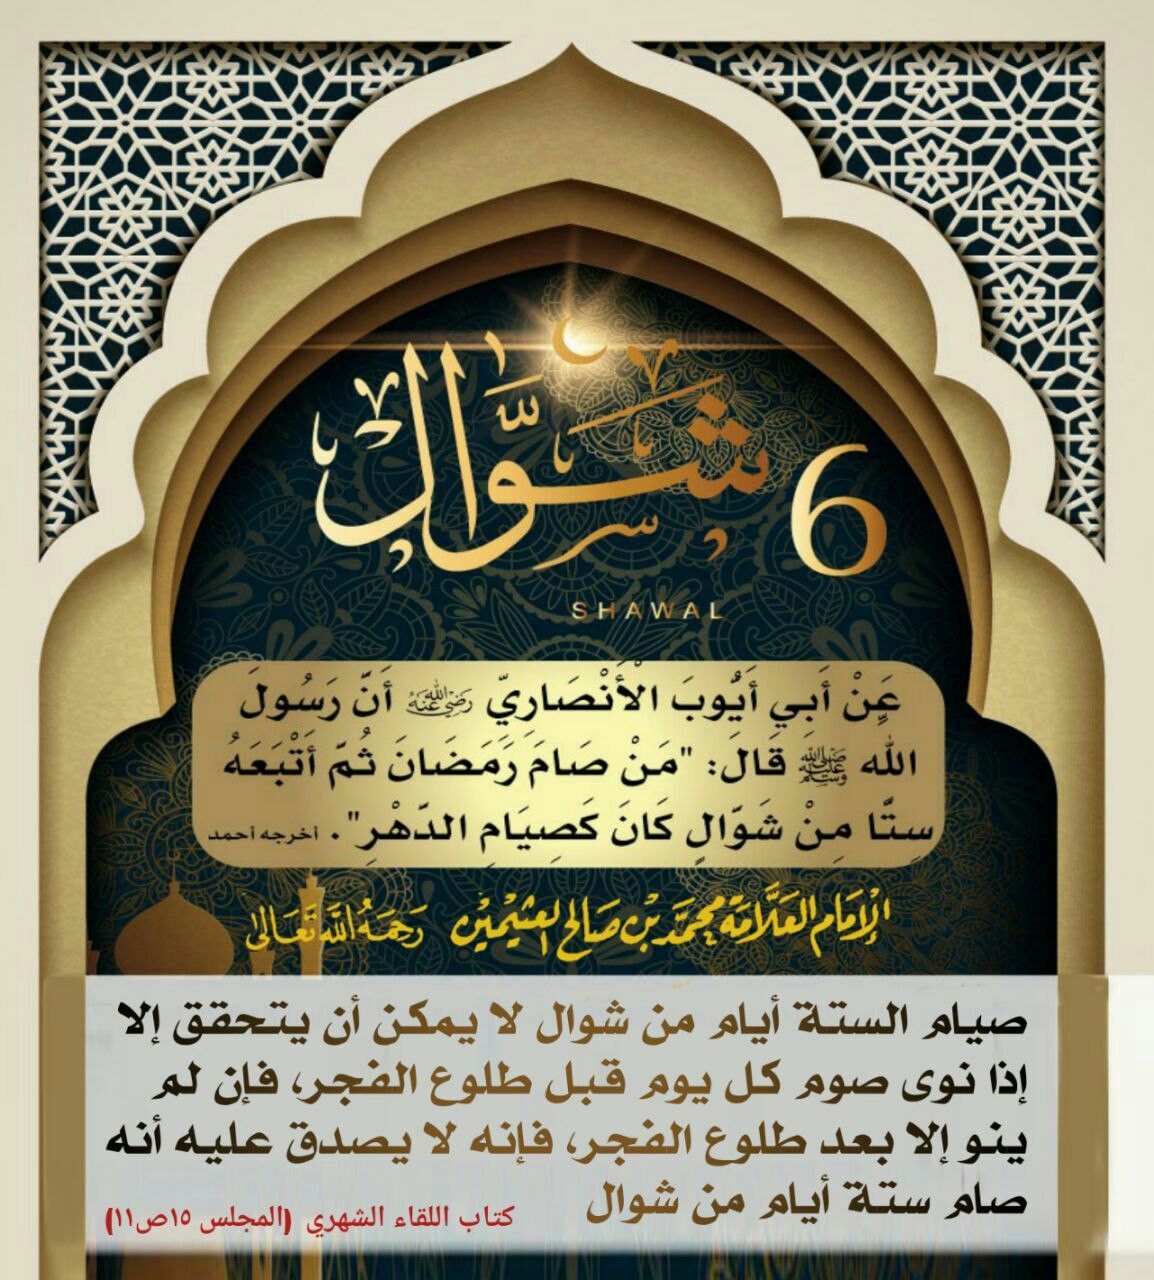 6 شَوَّال
SHAWAL
عَنْ أَبِي أَيُّوبَ الْأَنْصَارِيّ رَضِيَ اللهُ عَنْهُ أَنّ رَسُولَ
الله ﷺ قَال: "مَنْ صَامَ رَمَضَانَ ثُمّ أَتْبَعَهُ
سِتّا مِنْ شَوّالٍ كَانَ كَصِيَامِ الدّهْرِ". أخرجه أحمد
الْإِمَام العَلَّامَة مُحَمَّد بْن صَالِح العثيمين رَحِمَهُ اللَّهُ تَعَالَى
صيام الستة أيام من شوال لا يمكن أن يتحقق إلا
إذا نوى صوم كل يوم قبل طلوع الفجر، فإن لم
ينو إلا بعد طلوع الفجر، فإنه لا يصدق عليه أنه
صام ستة أيام من شوال كتاب اللقاء الشهري (المجلس ١٥ص١١)